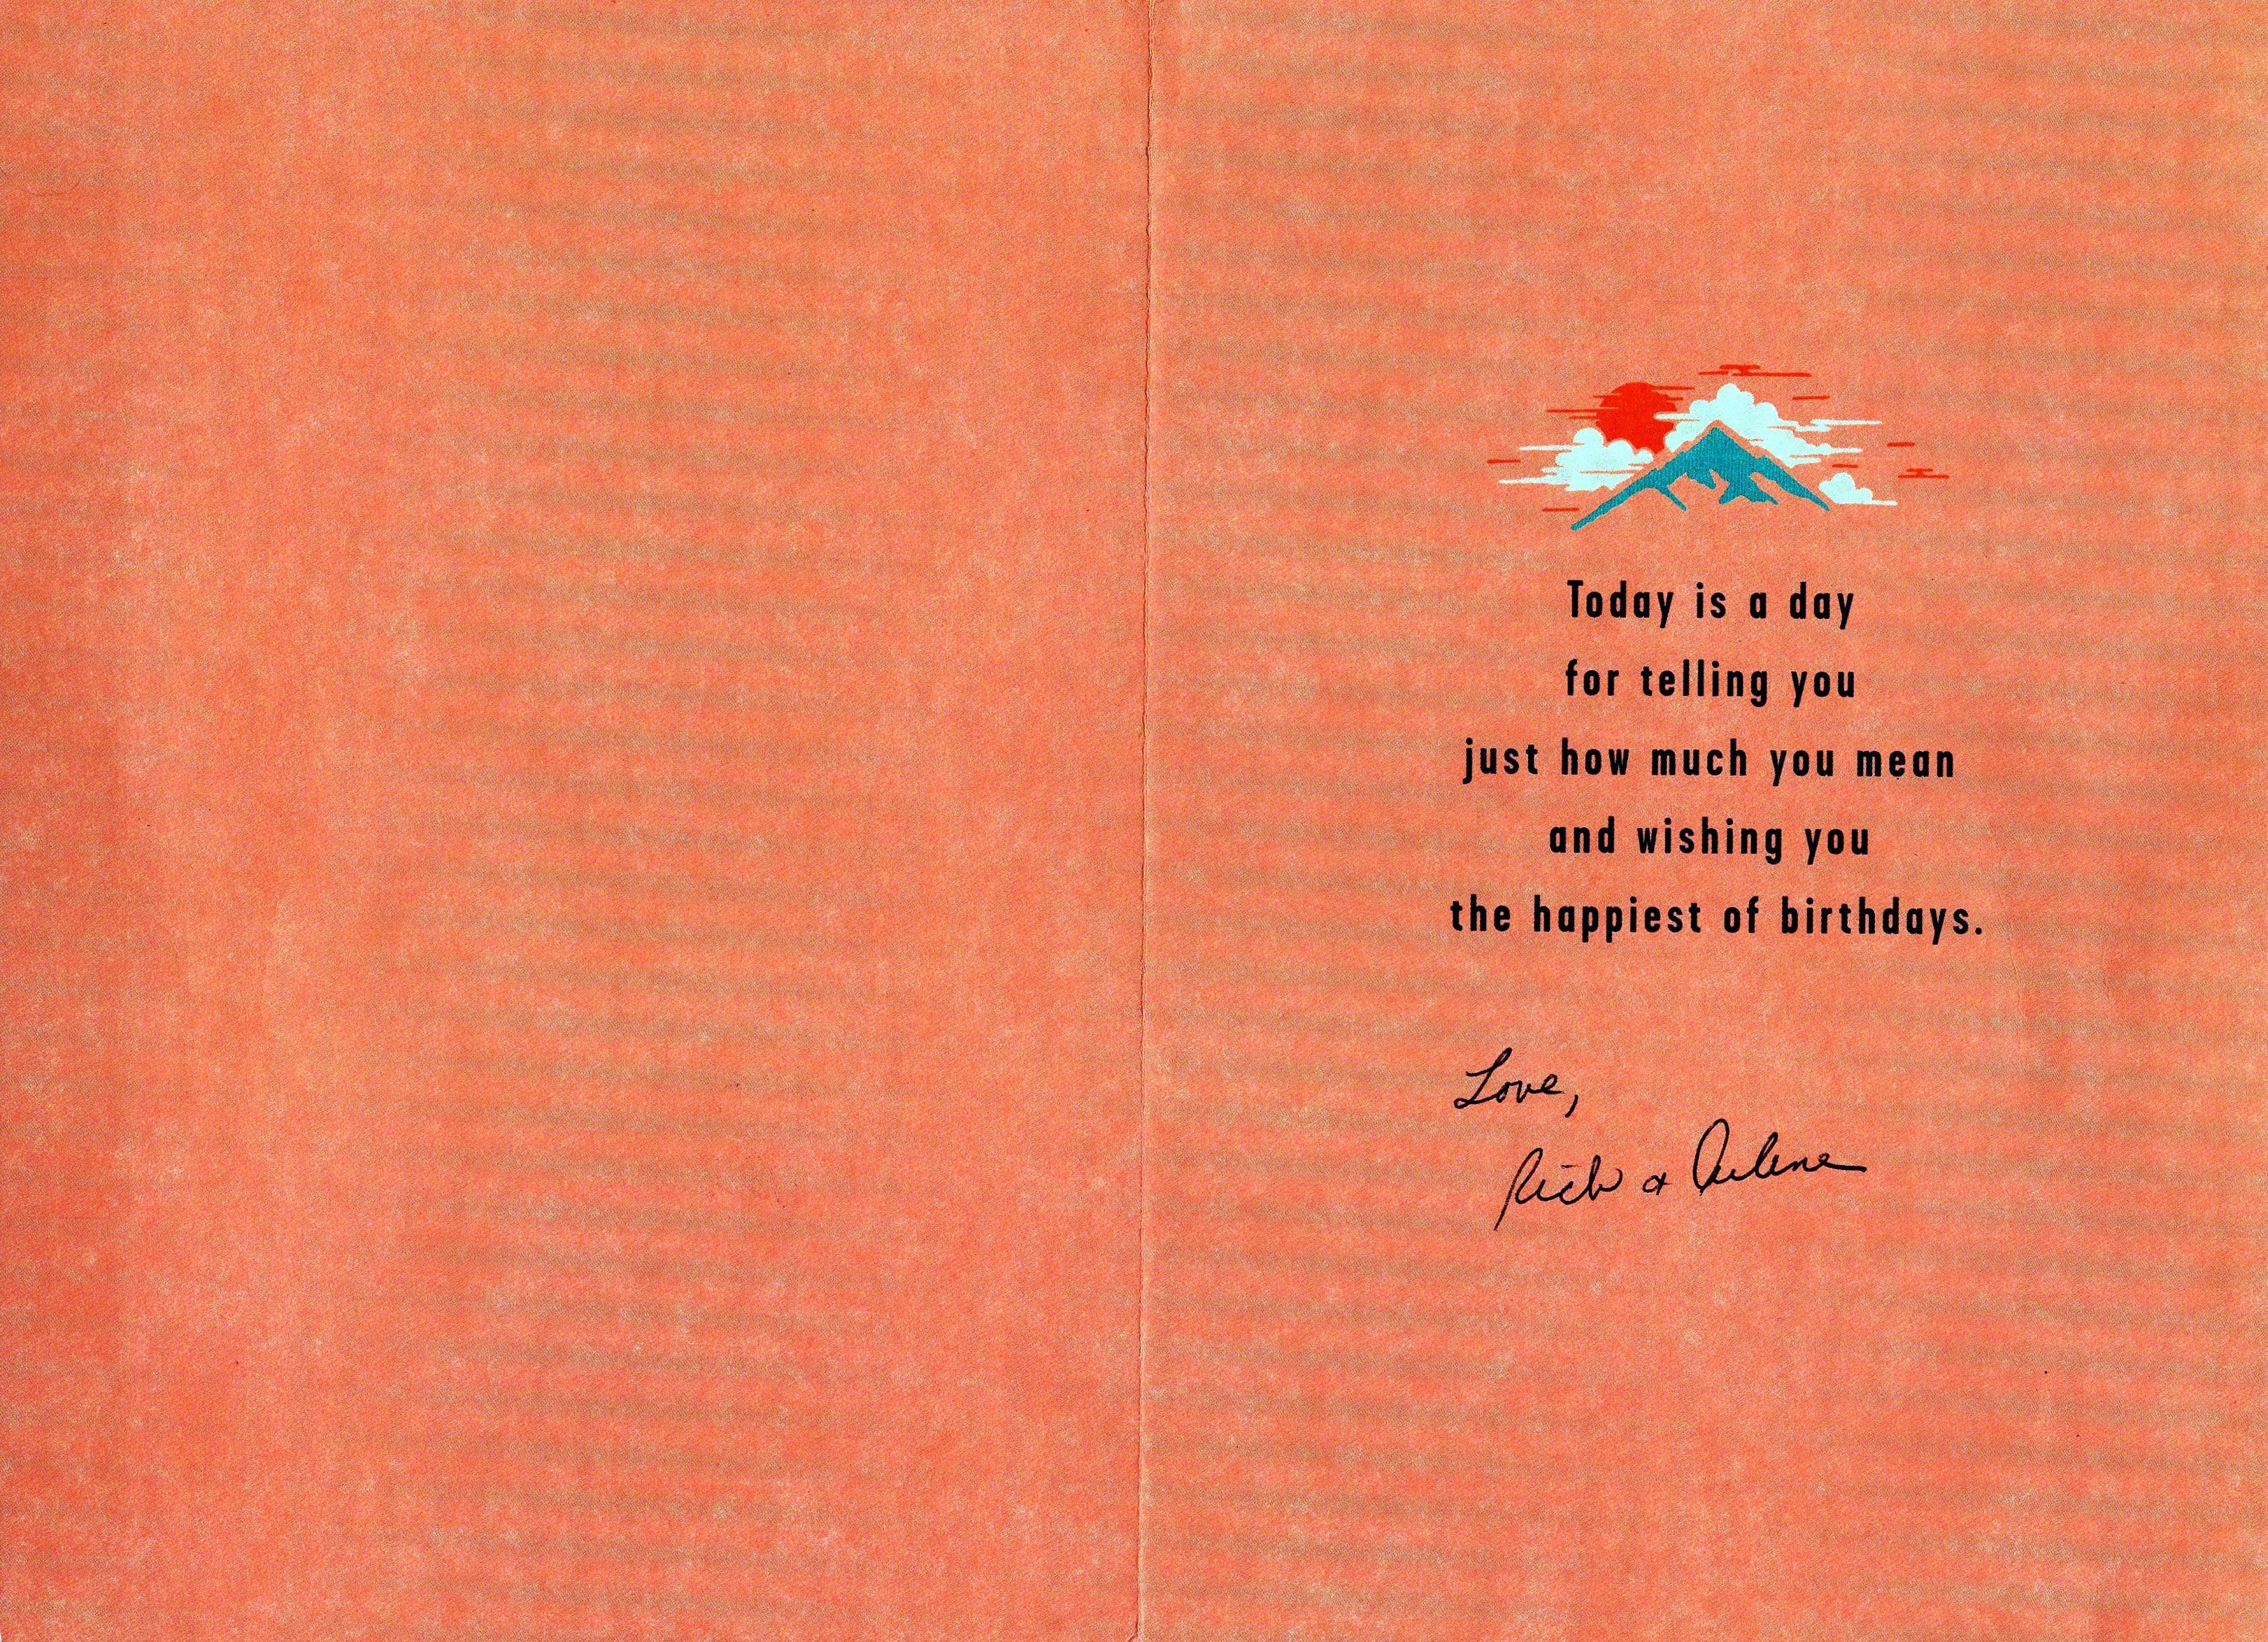 Today is a day
for telling you
just how much you mean
and wishing you
the happiest of birthdays.
Love,
Rich & Arlene